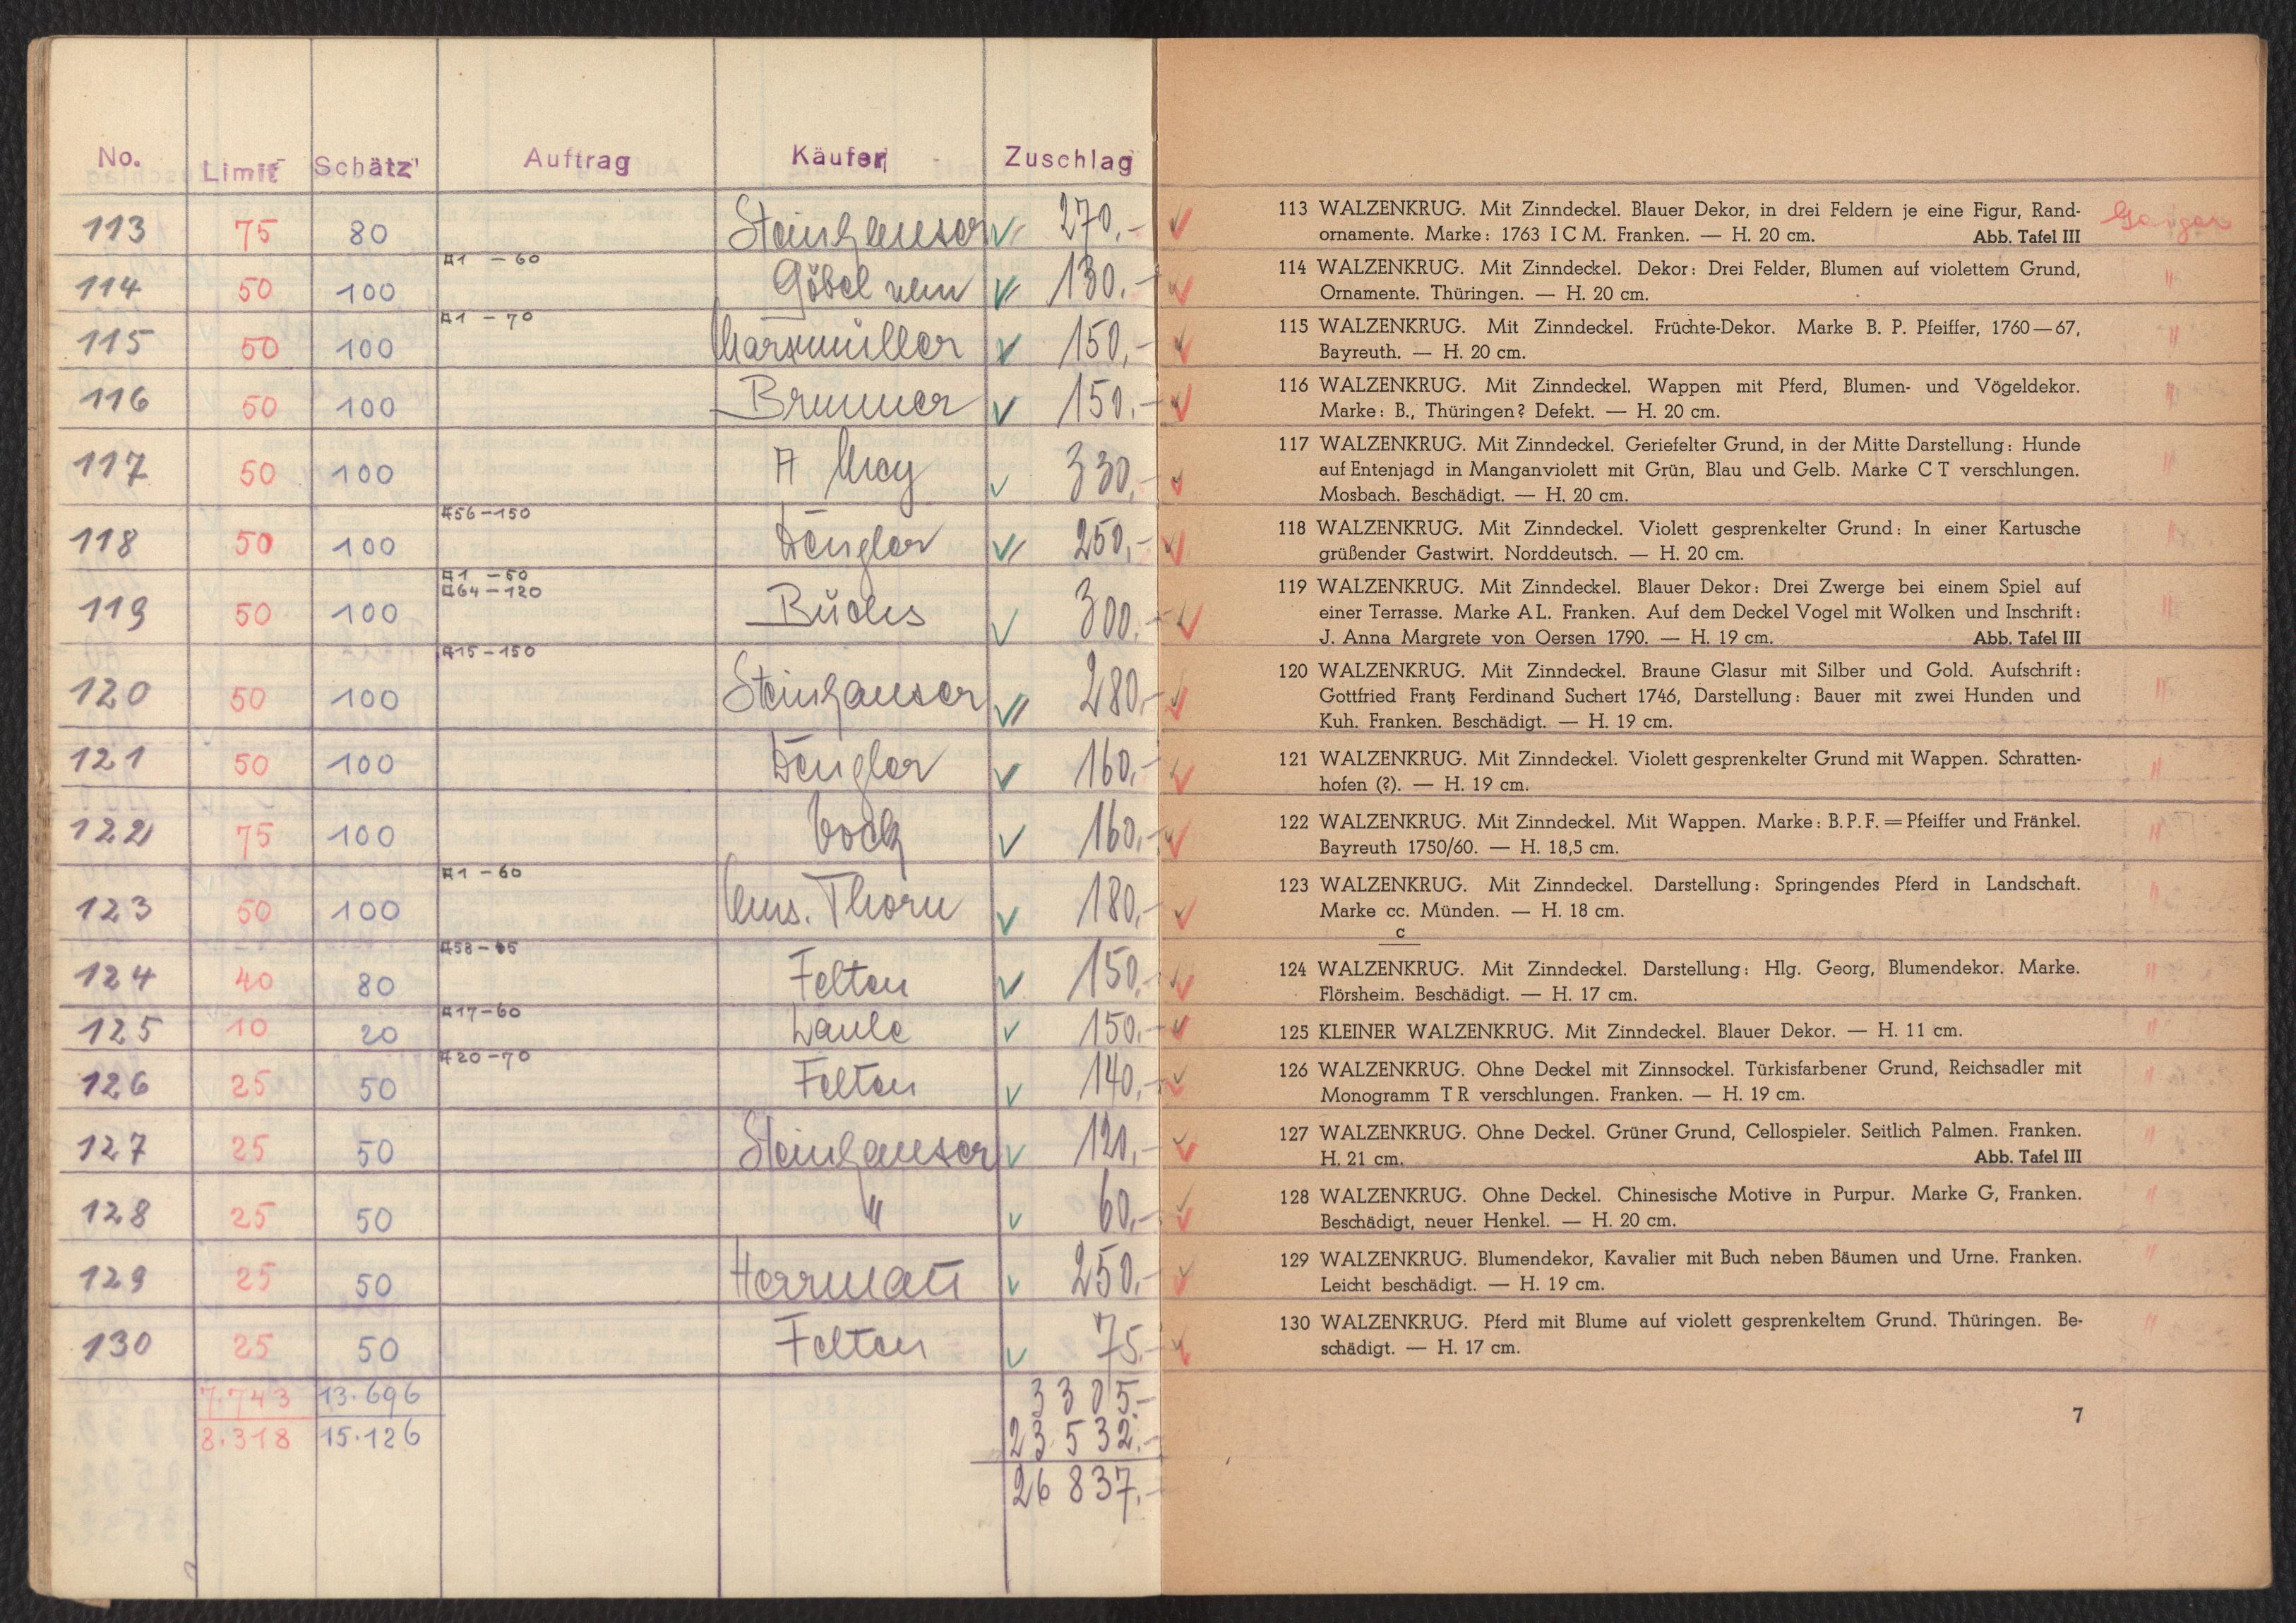 No. Limit Schätz Auftrag Käufer Zuschlag
113 75 80 Steinhauser 270,-
114 50 100 ¤1 - 60 Göbel 130.-
115 50 100 ¤1 - 70 150,-
116 50 100 Brunner 150.-
117 50 100 A May 330,-
118 50 100 ¤56-150 Dengler 250,-
119 50 100 ¤1 - 50 300.-
¤64-120
120 50 100 ¤15-150 Steinhauser 280,-
121 50 100 Dengler 160,-
122 75 100 160,-
123 50 100 ¤1 - 60 Mus. Thorn 180,-
124 40 80 Felten 150,-
125 10 20 ¤17-60 Laule 150,-
126 25 50 ¤20-70 Felten 140,-
127 25 50 Steinhauser 120,-
128 25 50 " 60,-
129 25 50 Herrman̄ 250,-
130 25 50 Felten 75.-
7.743 13.696 3305.-
8.318 15.126 23532.-
26837.-
113 WALZENKRUG. Mit Zinndeckel. Blauer Dekor, in drei Feldern je eine Figur, Rand-
ornamente. Marke: 1763 I C M. Franken. — H. 20 cm. Abb. Tafel III
114 WALZENKRUG. Mit Zinndeckel. Dekor: Drei Felder, Blumen auf violettem Grund, "
Ornamente. Thüringen. — H. 20 cm.
115 WALZENKRUG. Mit Zinndeckel. Früchte-Dekor. Marke B. P. Pfeiffer, 1760—67, "
Bayreuth. — H. 20 cm.
116 WALZENKRUG. Mit Zinndeckel. Wappen mit Pferd, Blumen- und Vögeldekor. "
Marke: B., Thüringen? Defekt. — H. 20 cm.
117 WALZENKRUG. Mit Zinndeckel. Geriefelter Grund, in der Mitte Darstellung: Hunde "
auf Entenjagd in Manganviolett mit Grün, Blau und Gelb. Marke C T verschlungen.
Mosbach. Beschädigt. — H. 20 cm.
118 WALZENKRUG. Mit Zinndeckel. Violett gesprenkelter Grund: In einer Kartusche "
grüßender Gastwirt. Norddeutsch. — H. 20 cm.
119 WALZENKRUG. Mit Zinndeckel. Blauer Dekor: Drei Zwerge bei einem Spiel auf "
einer Terrasse. Marke AL. Franken. Auf dem Deckel Vogel mit Wolken und Inschrift:
J. Anna Margrete von Oersen 1790. — H. 19 cm. Abb. Tafel III
120 WALZENKRUG. Mit Zinndeckel. Braune Glasur mit Silber und Gold. Aufschrift: "
Gottfried Frantz Ferdinand Suchert 1746, Darstellung: Bauer mit zwei Hunden und
Kuh. Franken. Beschädigt. — H. 19 cm.
121 WALZENKRUG. Mit Zinndeckel. Violett gesprenkelter Grund mit Wappen. Schratten- "
hofen (?). — H. 19 cm.
122 WALZENKRUG. Mit Zinndeckel. Mit Wappen. Marke: B.P.F. = Pfeiffer und Fränkel. "
Bayreuth 1750/60. — H. 18,5 cm.
123 WALZENKRUG. Mit Zinndeckel. Darstellung: Springendes Pferd in Landschaft. "
Marke cc. Münden. — H. 18 cm.
c
124 WALZENKRUG. Mit Zinndeckel. Darstellung: Hlg. Georg, Blumendekor. Marke. "
Flörsheim. Beschädigt. — H. 17 cm.
125 KLEINER WALZENKRUG. Mit Zinndeckel. Blauer Dekor. — H. 11 cm. "
126 WALZENKRUG. Ohne Deckel mit Zinnsockel. Türkisfarbener Grund, Reichsadler mit "
Monogramm T R verschlungen. Franken. — H. 19 cm.
127 WALZENKRUG. Ohne Deckel. Grüner Grund, Cellospieler. Seitlich Palmen. Franken. "
H. 21 cm. Abb. Tafel III
128 WALZENKRUG. Ohne Deckel. Chinesische Motive in Purpur. Marke G, Franken. "
Beschädigt, neuer Henkel. — H. 20 cm.
129 WALZENKRUG. Blumendekor, Kavalier mit Buch neben Bäumen und Urne. Franken. "
Leicht beschädigt. — H. 19 cm.
130 WALZENKRUG. Pferd mit Blume auf violett gesprenkeltem Grund. Thüringen. Be- "
schädigt. — H. 17 cm.
7